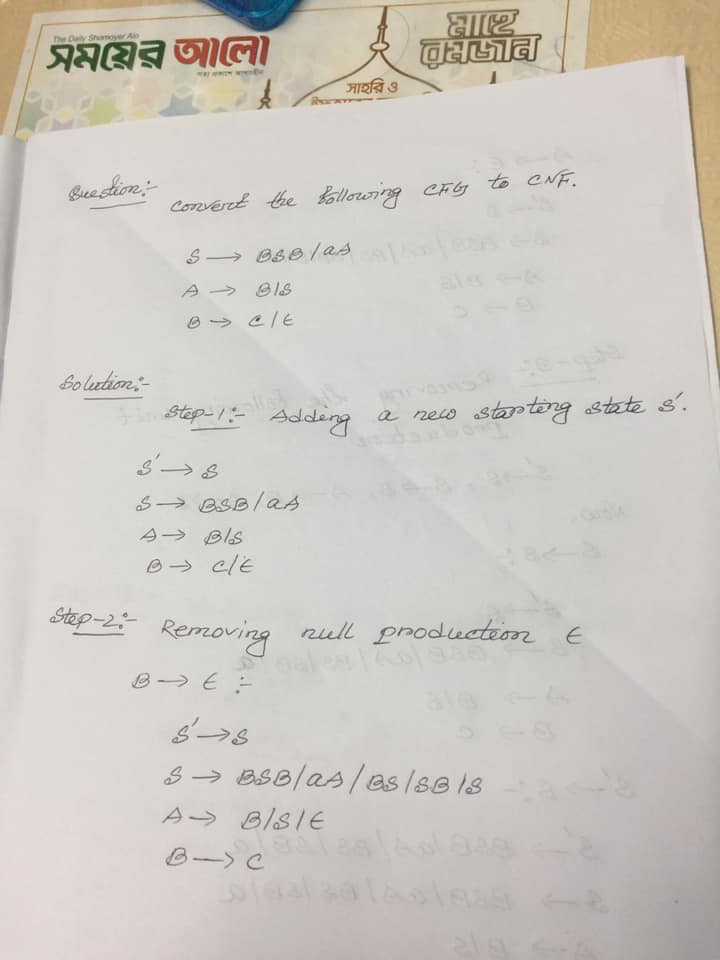 The Daily Shomoyer Alo
সময়ের আলো
মাহে
রমজান
সাহরি ও
Question:-
Convert the following CFG to CNF.
S → BSB/aA
A → B|S
B → C/ϵ
Solution:-
Step-1:- Adding a new starting state S'.
S' → S
S → BSB/aA
A → B|S
B → C/ϵ
Step-2:- Removing null production ϵ
B → ϵ :-
S' → S
S → BSB/aA/BS/SB|S
A → B/S/ϵ
B → C